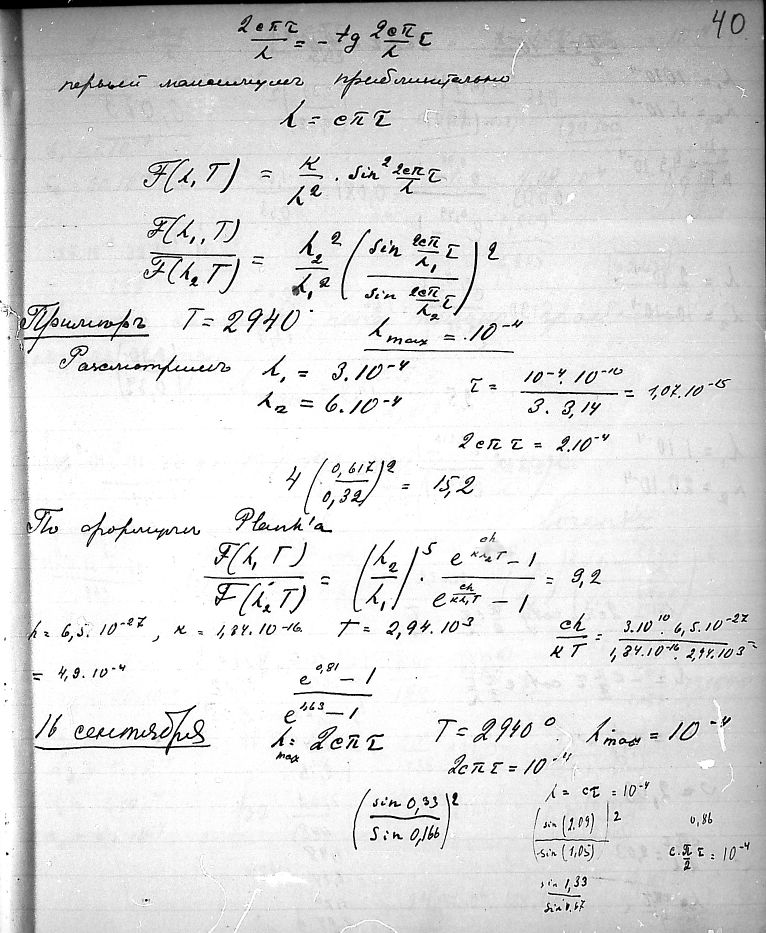 40
2cπτ/λ = - tg 2cπ/λ τ
первый максимумъ приблизительно
λ = cπτ
F(λ,T) = K/λ² · sin² 2cπ/λ τ
F(λ₁,T)/F(λ₂T) = λ₂²/λ₁² (sin 2cπ/λ₁ τ / sin 2cπ/λ₂ τ)²
Примѣръ T = 2940° λmax = 10⁻⁴
Разсмотримъ λ₁ = 3.10⁻⁴ τ = 10⁻⁴.10⁻¹⁰/3.3,14 = 1,07.10⁻¹⁵
λ₂ = 6.10⁻⁴
2cπτ = 2.10⁻⁴
4 (0,617/0,32)² = 15,2
По формулѣ Plank'a
F(λ,T)/F(λ₂T) = (λ₂/λ₁)⁵ · e^(ch/κλ₂T) - 1 / e^(ch/κλ₁T) - 1 = 9,2
h = 6,5.10⁻²⁷, κ = 1,34.10⁻¹⁶. T = 2,94.10³ ch/κT = 3.10¹⁰.6,5.10⁻²⁷/1,34.10⁻¹⁶.2,94.10³ =
= 4,9.10⁻⁴ e^0,81 - 1 / e^1,63 - 1
16 сентября λmax = 2cπτ T = 2940° λmax = 10⁻⁴
2cπτ = 10⁻⁴
(sin 0,33/sin 0,166)² λ = cτ = 10⁻⁴
(sin(2,09)/sin(1,05))² 0,86
c.π/2 τ = 10⁻⁴
sin 1,33/sin 0,67